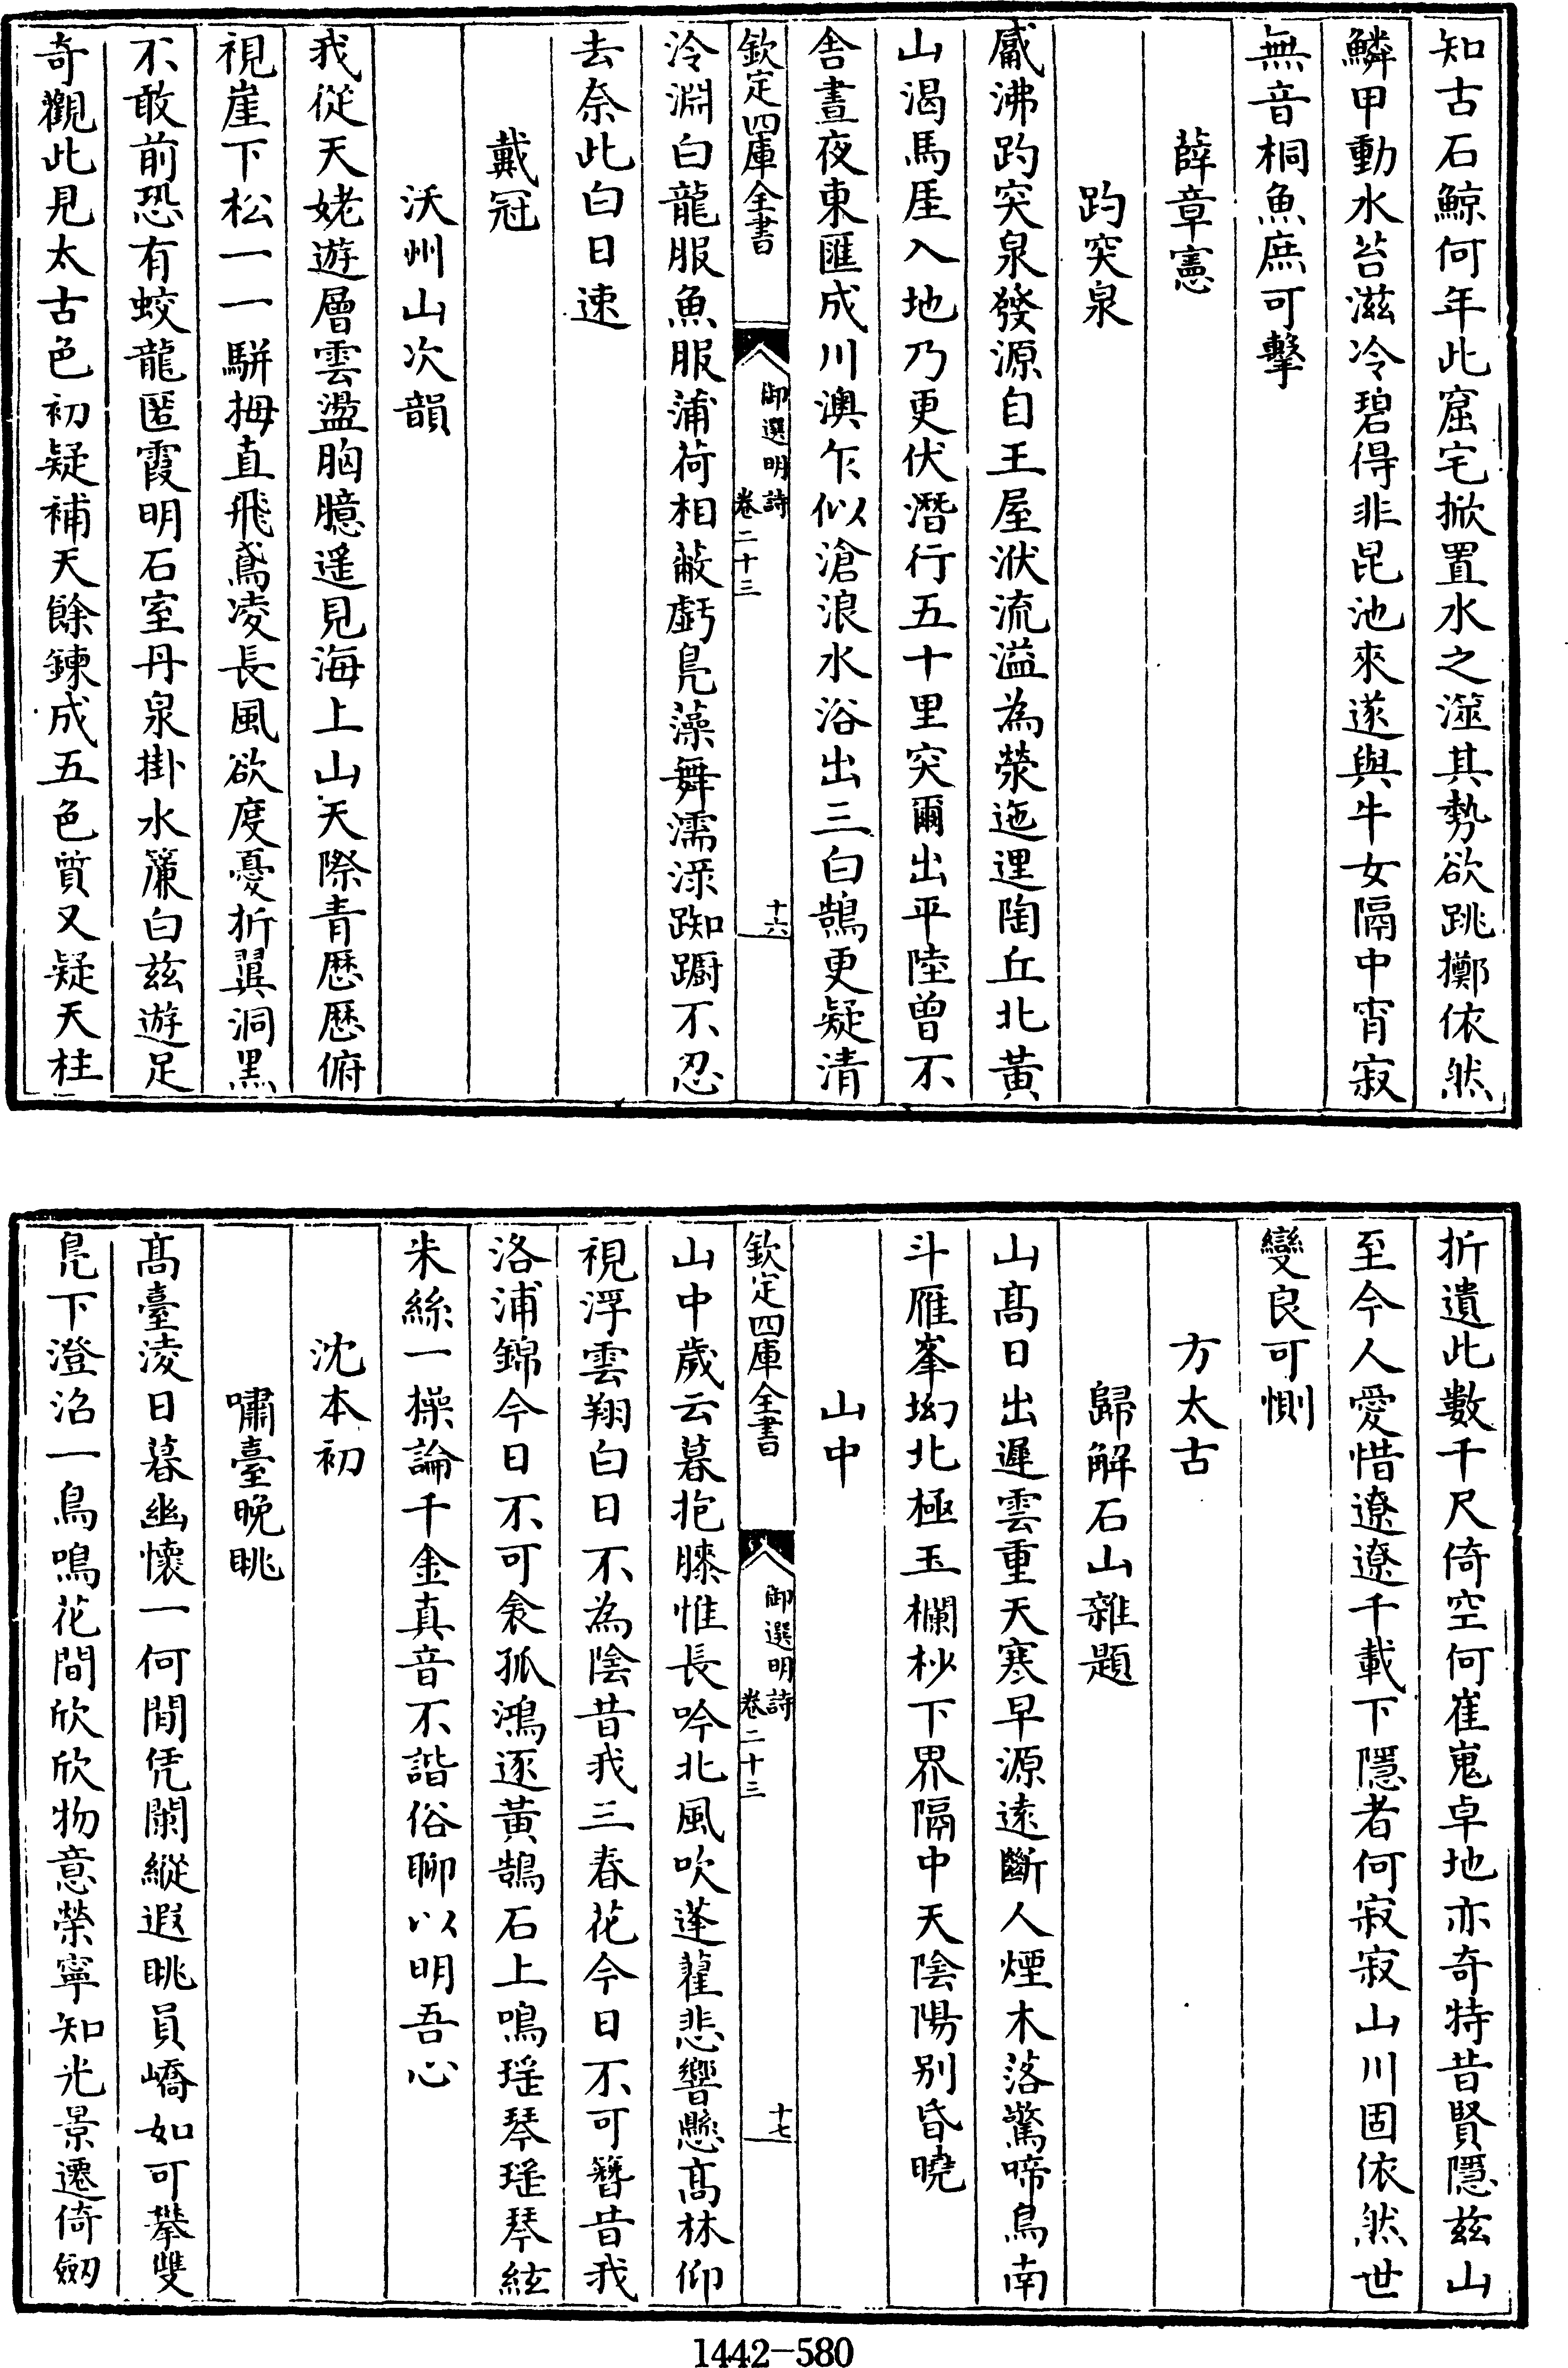 知古石鯨何年此窟宅掀置水之澨其勢欲跳擲依然
鱗甲動水苔滋冷碧得非昆池來遂與牛女隔中宵寂
無音桐魚庶可擊
薛章憲
趵突泉
觱沸趵突泉發源自王屋洑流溢為滎迤逦陶丘北黃
山渴馬厓入地乃更伏潛行五十里突爾出平陸曾不
舍晝夜東匯成川澳乍似滄浪水浴出三白鵠更疑清
欽定四庫全書
御選明詩
卷二十三
十六
泠淵白龍服魚服蒲荷相蔽虧鳧藻舞濡淥踟躕不忍
去奈此白日速
戴冠
沃州山次韻
我從天姥遊層雲盪胸臆遥見海上山天際青歷歷俯
視崖下松一一駢拇直飛鳶凌長風欲度憂折翼洞黑
不敢前恐有蛟龍匿霞明石室丹泉掛水簾白兹遊足
奇觀此見太古色初疑補天餘鍊成五色質又疑天柱
折遺此數千尺倚空何崔嵬卓地亦奇特昔賢隱兹山
至今人愛惜遼遼千載下隱者何寂寂山川固依然世
變良可惻
方太古
歸解石山雜題
山髙日出遲雲重天寒早源遠斷人煙木落驚啼鳥南
斗雁峯坳北極玉欄杪下界隔中天陰陽别昏曉
山中
欽定四庫全書
御選明詩
卷二十三
十七
山中歲云暮抱膝惟長吟北風吹蓬藋悲響懸髙林仰
視浮雲翔白日不為陰昔我三春花今日不可簪昔我
洛浦錦今日不可衾孤鴻逐黃鵠石上鳴瑶琴瑶琴絃
朱絲一操論千金真音不諧俗聊以明吾心
沈本初
嘯臺晚眺
髙臺淩日暮幽懷一何閒凭闌縱遐眺員嶠如可攀雙
鳧下澄沼一鳥鳴花間欣欣物意榮寧知光景遷倚劒
1442-580